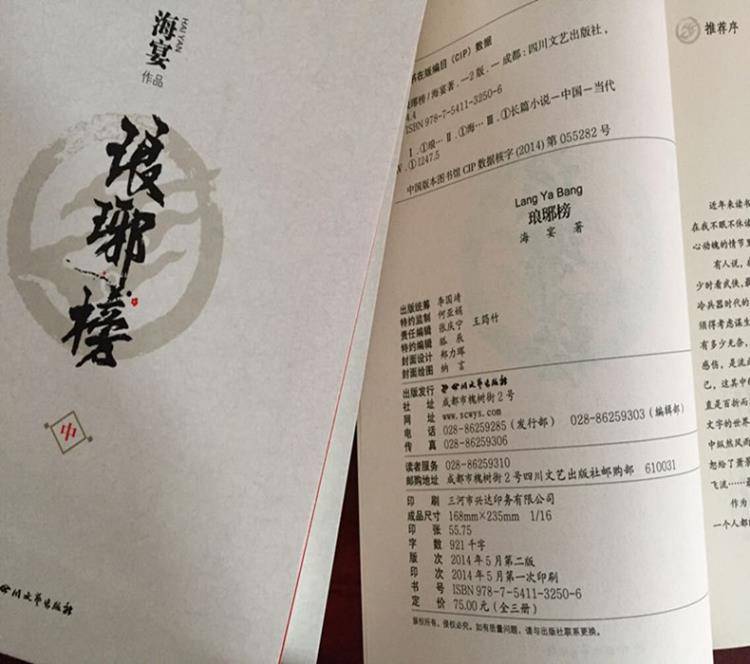 海宴
HAI YAN
作品
琅琊榜
中
四川文艺出版社
书在版编目（CIP）数据
琊榜/海宴著. —2版. —成都：四川文艺出版社，
4.4
ISBN 978-7-5411-3250-6
Ⅰ. ①琅… Ⅱ. ①海… Ⅲ. ①长篇小说—中国—当代
Ⅳ. ①I247.5
中国版本图书馆CIP数据核字(2014)第055282号
Lang Ya Bang
琅琊榜
海宴 著
出版统筹 李国靖
特约监制 何亚娟
责任编辑 张庆宁 王筠竹
特约编辑 聂辰
封面设计 郑力珲
封面绘图 纳言
出版发行 四川文艺出版社
社 址 成都市槐树街2号
网 址 www.scwys.com
电 话 028-86259285（发行部） 028-86259303（编辑部）
传 真 028-86259306
读者服务 028-86259310
邮购地址 成都市槐树街2号四川文艺出版社邮购部 610031
印 刷 三河市兴达印务有限公司
成品尺寸 168mm×235mm 1/16
印 张 55.75
字 数 921千字
版 次 2014年5月第二版
印 次 2014年5月第一次印刷
书 号 ISBN 978-7-5411-3250-6
定 价 75.00元（全三册）
版权所有，侵权必究。如有质量问题，请与出版社联系更换。
推荐序
近年来读书
在我不眠不休读
心动魄的情节里
有人说，
少时看武侠，
冷兵器时代的
须得考虑谋生
有多少无奈，
感伤，是流
已，这其中
直是百折而
文字的世界
中纵然风雨
忽给了萧景
飞流……
作为
一个人都